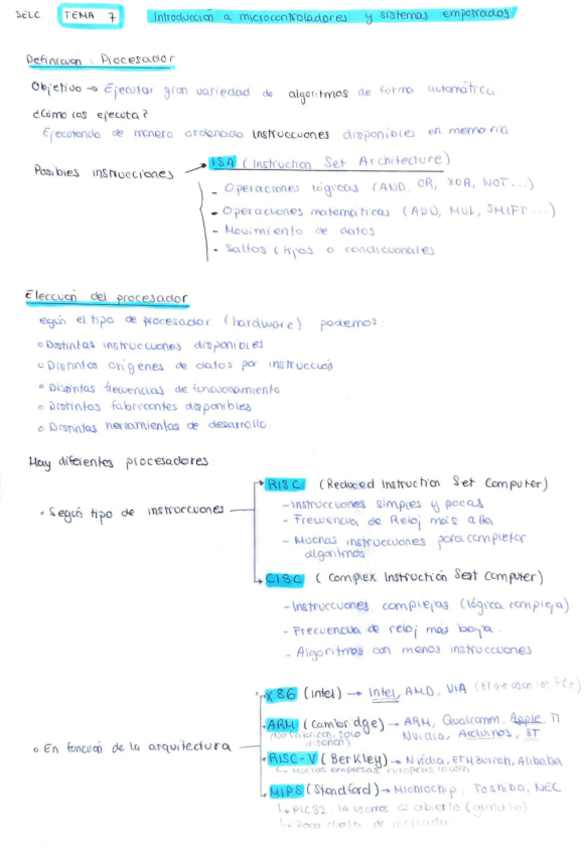 SELC TEMA 7 Introducción a microcontroladores y sistemas empotrados
Definición: Procesador
Objetivo → Ejecutar gran variedad de algoritmos de forma automática.
¿Cómo los ejecuta?
Ejecutando de manera ordenada instrucciones disponibles en memoria
Posibles instrucciones → ISA (Instruction Set Architecture)
- Operaciones lógicas (AND, OR, XOR, NOT...)
- Operaciones matemáticas (ADD, MUL, SHIFT...)
- Movimiento de datos
- Saltos (fijos o condicionales
Elección del procesador
egún el tipo de procesador (hardware) podemos:
o Distintas instrucciones disponibles
o Distintos orígenes de datos por instrucción
o Distintas frecuencias de funcionamiento
o Distintos fabricantes disponibles.
o Distintas herramientas de desarrollo.
Hay diferentes procesadores:
• Según tipo de instrucciones
RISC (Reduced Instruction Set Computer)
- Instrucciones simples y pocas
- Frecuencia de Reloj más alta
- Muchas instrucciones para completar
algoritmos
CISC (Complex Instruction Sest Computer)
- Instrucciones complejas (lógica compleja)
- Frecuencia de reloj más baja.
- Algoritmos con menos instrucciones
o En función de la arquitectura
X86 (Intel) → Intel, AMD, VIA (El que usan los PCs)
ARM (Cambridge) → ARM, Qualcomm, Apple, TI
(No fabrican, solo diseñan) Nvidia, Arduinos, ST
RISC-V (Berkley) → Nvidia, ETH Zurich, Alibaba
↳ Muchas empresas europeas lo usan
MIPS (Standford) → Microchip, Toshiba, NEC
↳ PIC32 la usamos es abierto (gratuito)
↳ Poca cuota de mercado